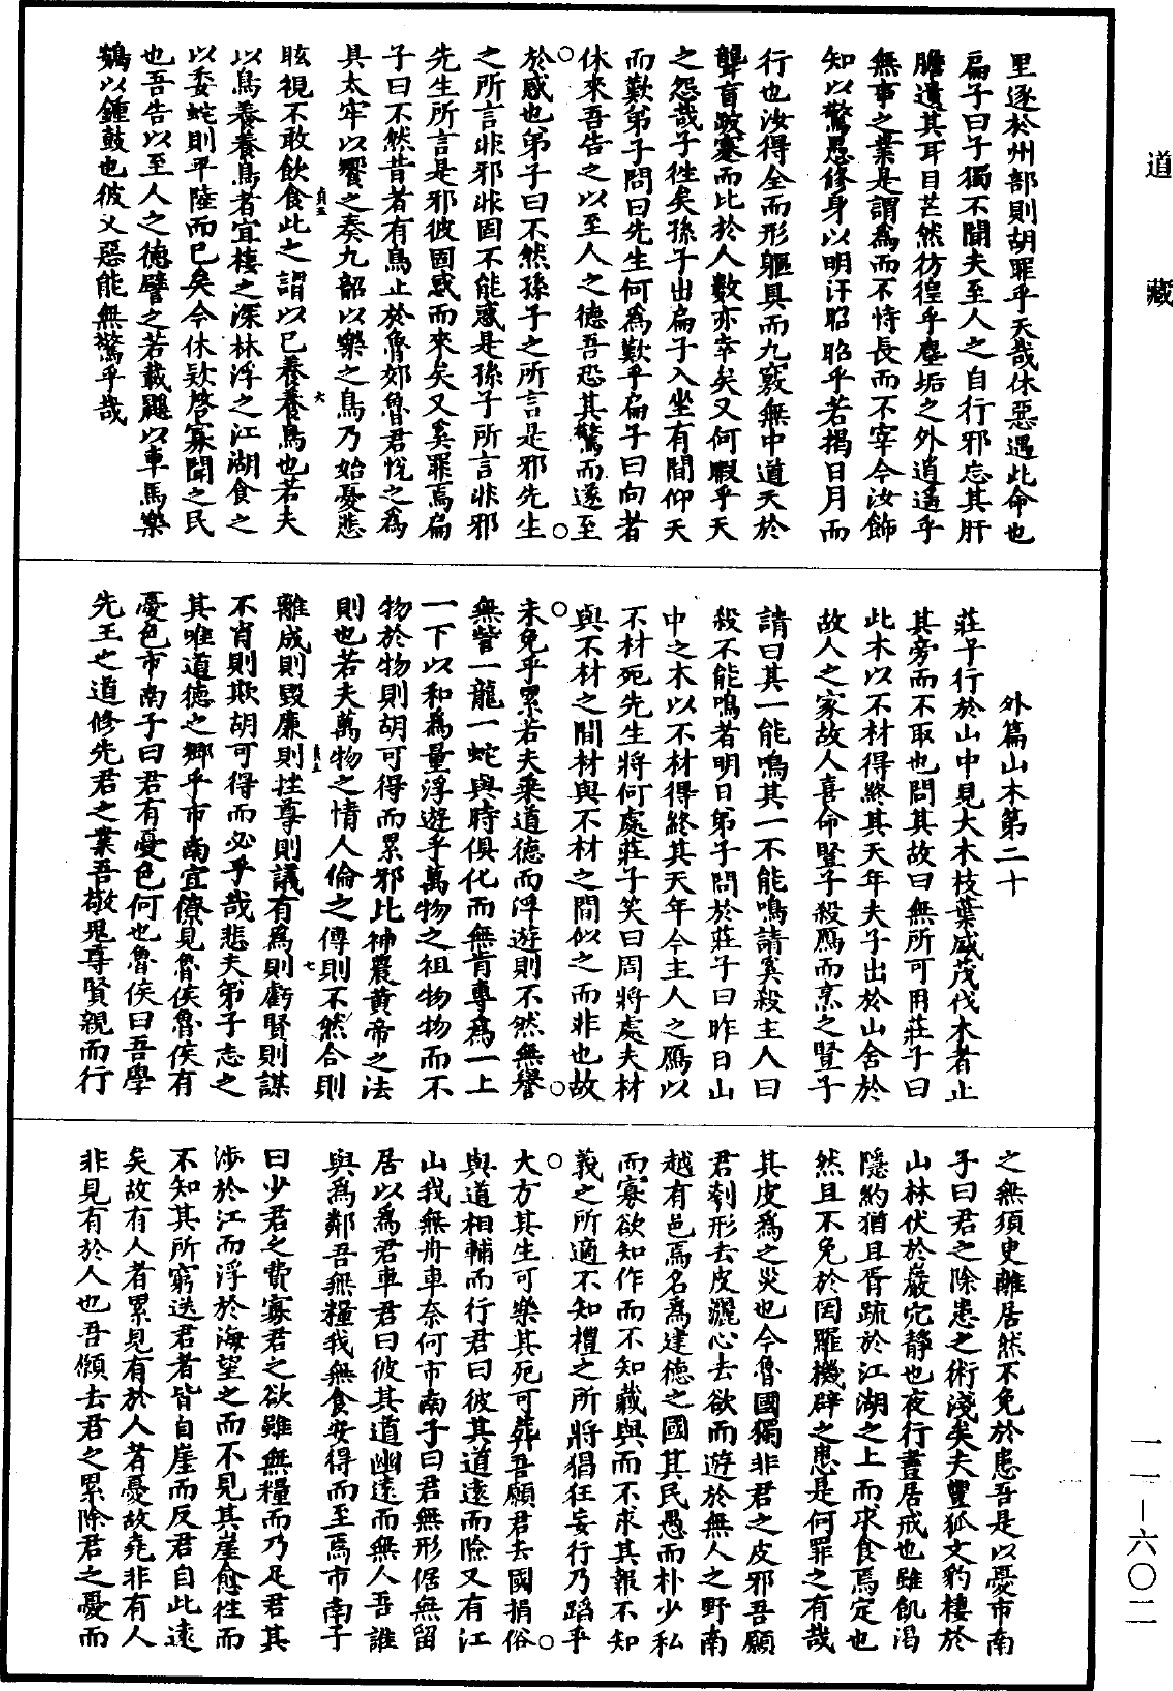 道藏
里逐於州部則胡罪乎天哉休惡遇此命也
扁子曰子獨不聞夫至人之自行邪忘其肝
膽遺其耳目芒然彷徨乎塵垢之外逍遙乎
無事之業是謂爲而不恃長而不宰今汝飾
知以驚愚修身以明汙昭昭乎若揭日月而
行也汝得全而形軀具而九竅無中道夭於
聾盲跛蹇而比於人數亦幸矣又何暇乎天
之怨哉子徃矣孫子出扁子入坐有間仰天
而歎弟子問曰先生何爲歎乎扁子曰向者
休來吾告之以至人之德吾恐其驚而遂至
於惑也弟子曰不然孫子之所言是邪先生
之所言非邪非固不能惑是孫子所言非邪
先生所言是邪彼固惑而來矣又奚罪焉扁
子曰不然昔者有鳥止於魯郊魯君悅之爲
具太牢以饗之奏九韶以樂之鳥乃始憂悲
眩視不敢飲食此之謂以已養養鳥也若夫
以鳥養養鳥者宜棲之深林浮之江湖食之
以委蛇則平陸而已矣今休款啓寡聞之民
也吾告以至人之德譬之若載鼷以車馬樂
鴳以鍾鼓也彼又惡能無驚乎哉
外篇山木第二十
莊子行於山中見大木枝葉盛茂伐木者止
其旁而不取也問其故曰無所可用莊子曰
此木以不材得終其天年夫子出於山舍於
故人之家故人喜命豎子殺鴈而烹之豎子
請曰其一能鳴其一不能鳴請奚殺主人曰
殺不能鳴者明日弟子問於莊子曰昨日山
中之木以不材得終其天年今主人之鴈以
不材死先生將何處莊子笑曰周將處夫材
與不材之間材與不材之間似之而非也故
未免乎累若夫乗道德而浮遊則不然無譽
無訾一龍一蛇與時俱化而無肯專爲一上
一下以和爲量浮遊乎萬物之祖物物而不
物於物則胡可得而累邪此神農黄帝之法
則也若夫萬物之情人倫之傳則不然合則
離成則毀廉則挫尊則議有爲則虧賢則謀
不肖則欺胡可得而必乎哉悲夫弟子志之
其唯道德之鄉乎市南宜僚見魯侯魯侯有
憂色市南子曰君有憂色何也魯侯曰吾學
先王之道修先君之業吾敬鬼尊賢親而行
之無須臾離居然不免於患吾是以憂市南
子曰君之除患之術淺矣夫豐狐文豹棲於
山林伏於巖穴靜也夜行晝居戒也雖飢渴
隱約猶且胥疏於江湖之上而求食焉定也
然且不免於罔羅機辟之患是何罪之有哉
其皮爲之災也今魯國獨非君之皮邪吾願
君刳形去皮灑心去欲而遊於無人之野南
越有邑焉名爲建德之國其民愚而朴少私
而寡欲知作而不知藏與而不求其報不知
義之所適不知禮之所將猖狂妄行乃蹈乎
大方其生可樂其死可葬吾願君去國捐俗
與道相輔而行君曰彼其道遠而險又有江
山我無舟車奈何市南子曰君無形倨無留
居以爲君車君曰彼其道幽遠而無人吾誰
與爲鄰吾無糧我無食安得而至焉市南子
曰少君之費寡君之欲雖無糧而乃足君其
涉於江而浮於海望之而不見其崖愈徃而
不知其所窮送君者皆自崖而反君自此遠
矣故有人者累見有於人者憂故堯非有人
非見有於人也吾願去君之累除君之憂而
一一—六〇二